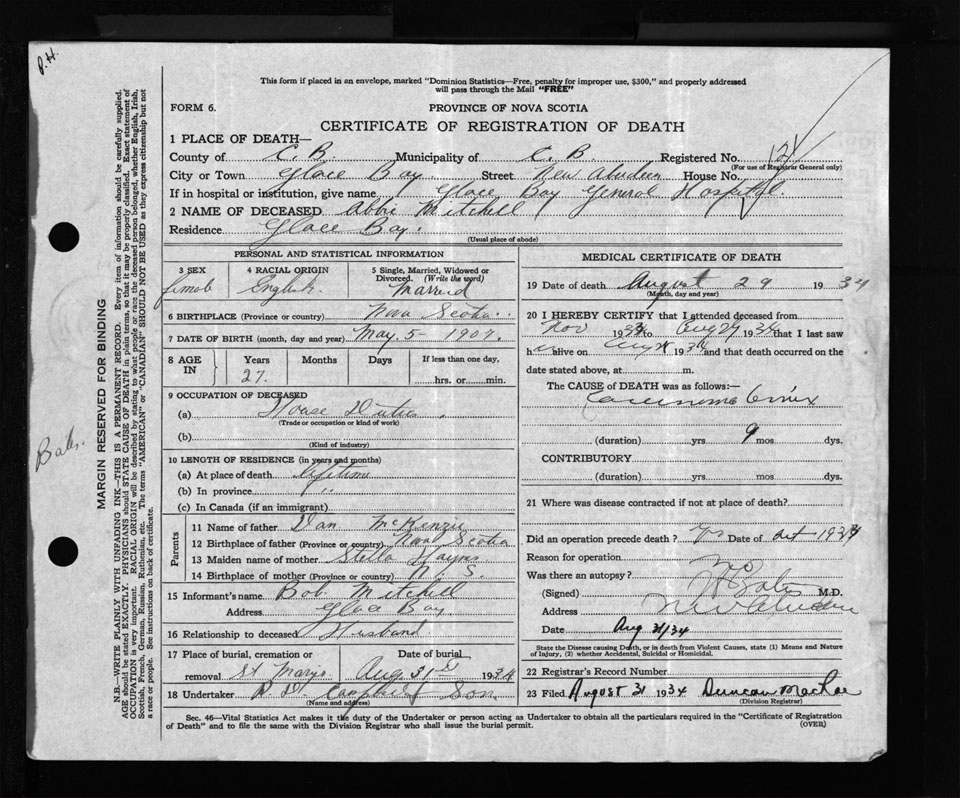 P.H.
This form if placed in an envelope, marked "Dominion Statistics—Free, penalty for improper use, $300," and properly addressed
will pass through the Mail "FREE"
FORM 6.
PROVINCE OF NOVA SCOTIA
CERTIFICATE OF REGISTRATION OF DEATH
1 PLACE OF DEATH—
County of C. B. Municipality of C. B. Registered No. 121
(For use of Registrar General only)
City or Town Glace Bay Street New Aberdeen House No.
If in hospital or institution, give name Glace Bay General Hospital.
2 NAME OF DECEASED Abbie Mitchell
Residence Glace Bay.
(Usual place of abode)
PERSONAL AND STATISTICAL INFORMATION
3 SEX 4 RACIAL ORIGIN 5 Single, Married, Widowed or Divorced. (Write the word)
female English Married
6 BIRTHPLACE (Province or country) Nova Scotia
7 DATE OF BIRTH (month, day and year) May 5 - 1907.
8 AGE IN Years Months Days If less than one day,
27. hrs. or min.
9 OCCUPATION OF DECEASED
(a) House Duties.
(Trade or occupation or kind of work)
(b)
(Kind of industry)
10 LENGTH OF RESIDENCE (in years and months)
(a) At place of death lifetime
(b) In province "
(c) In Canada (if an immigrant)
Parents
11 Name of father Dan McKenzie
12 Birthplace of father (Province or country) Nova Scotia
13 Maiden name of mother Stella
14 Birthplace of mother (Province or country) N. S.
15 Informant's name Bob Mitchell
Address Glace Bay.
16 Relationship to deceased Husband
17 Place of burial, cremation or removal Date of burial
St Marys Aug 31st 1934
18 Undertaker Campbell Son
(Name and address)
MEDICAL CERTIFICATE OF DEATH
19 Date of death August 29 1934
(Month, day and year)
20 I HEREBY CERTIFY that I attended deceased from
Nov 1933 to Aug 29 1934 that I last saw
h alive on Aug 1934 and that death occurred on the
date stated above, at m.
The CAUSE of DEATH was as follows:—
Carcinoma Cervix
(duration) yrs 9 mos dys.
CONTRIBUTORY
(duration) yrs. mos. dys.
21 Where was disease contracted if not at place of death?
Did an operation precede death? Yes Date of
Reason for operation
Was there an autopsy?
(Signed) M.D.
Address New Aberdeen
Date Aug 31/34
State the Disease causing Death, or in death from Violent Causes, state (1) Means and Nature
of Injury, (2) whether Accidental, Suicidal or Homicidal.
22 Registrar's Record Number
23 Filed August 31 1934 Duncan MacRae
(Division Registrar)
Sec. 46—Vital Statistics Act makes it the duty of the Undertaker or person acting as Undertaker to obtain all the particulars required in the "Certificate of Registration
of Death" and to file the same with the Division Registrar who shall issue the burial permit. (OVER)
MARGIN RESERVED FOR BINDING
N.B.—WRITE PLAINLY WITH UNFADING INK—THIS IS A PERMANENT RECORD. Every item of information should be carefully supplied.
AGE should be stated EXACTLY. PHYSICIANS should STATE CAUSE OF DEATH in plain terms, so that it may be properly classified. Exact statement of
OCCUPATION is very important. RACIAL ORIGIN will be described by stating to what people or race the deceased person belonged, whether English, Irish,
Scottish, French, German, Russian, Ruthenian, etc. The terms "AMERICAN" or "CANADIAN" SHOULD NOT BE USED as they express citizenship but not
a race or people. See instructions on back of certificate.